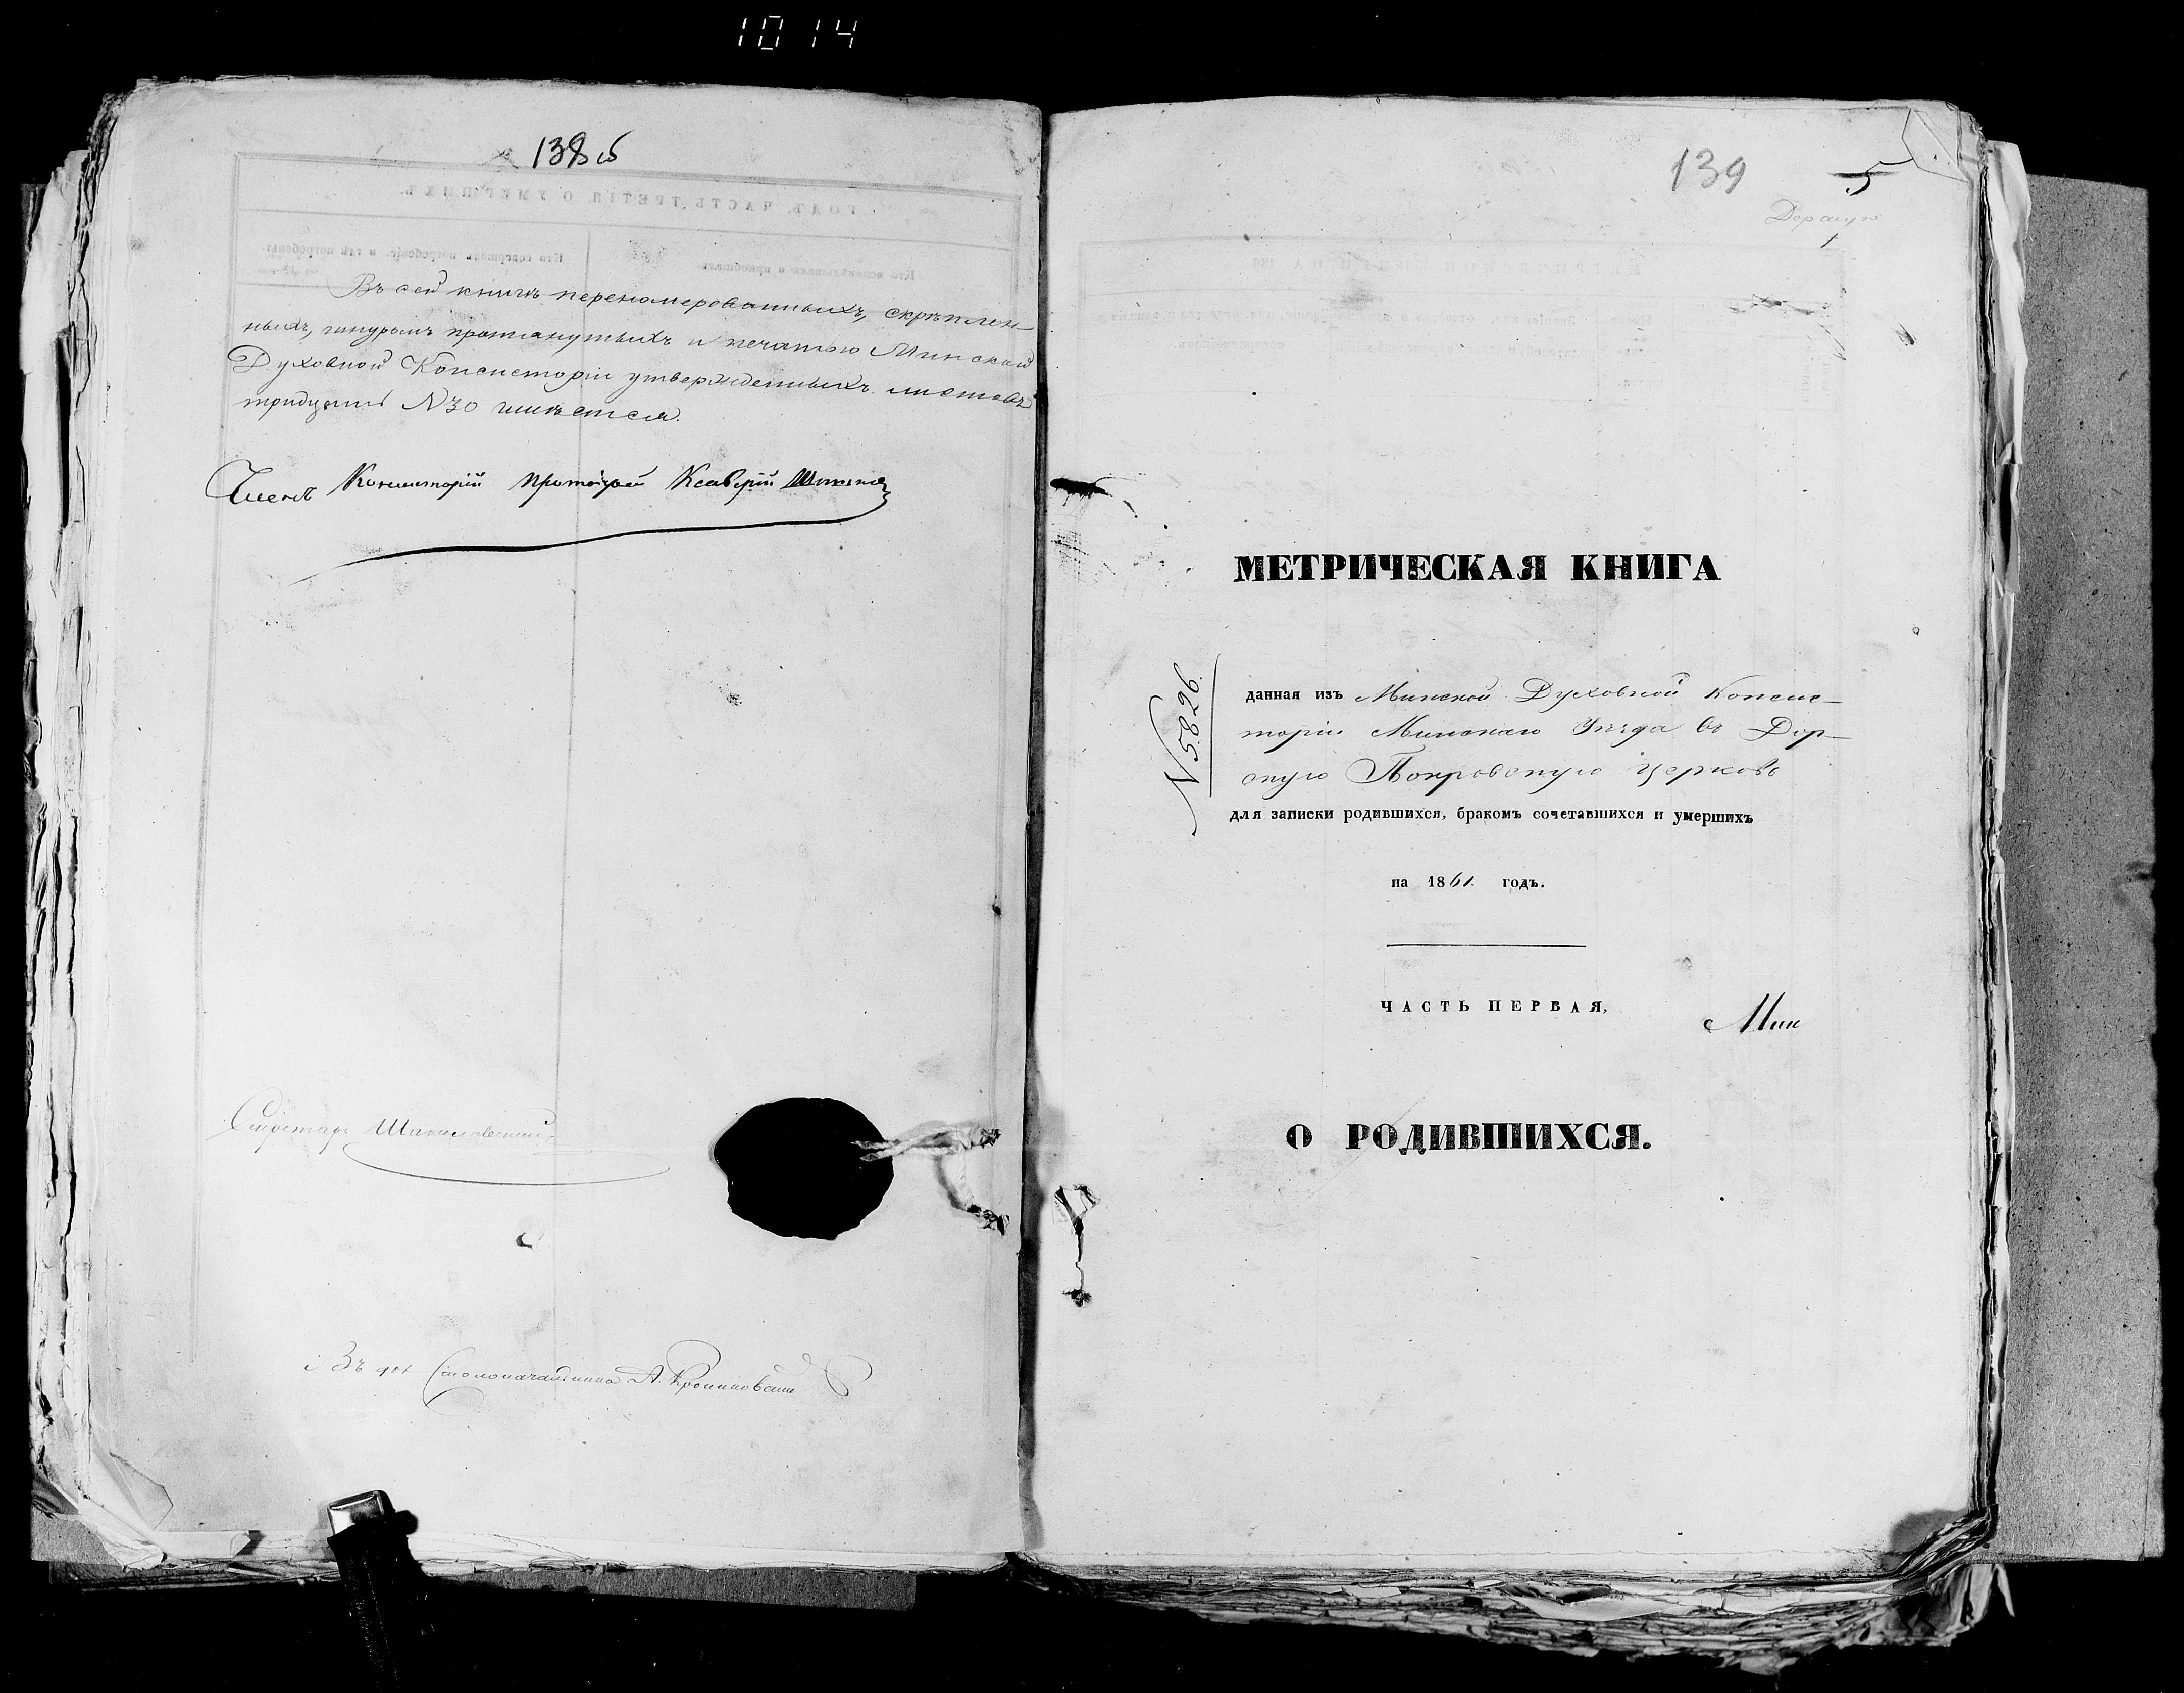 1014
138 об
Въ сей книгѣ перенумерованныхъ, скрѣплен-
ныхъ, шнуромъ протянутыхъ и печатью Минской
Духовной Консисторіи утвержденныхъ листовъ
тридцать N 30 имѣется.
Членъ Консисторіи протоіерей Ксаверій
Секретарь
Въ Столоначальника А.
139 5
Дорскую
1
МЕТРИЧЕСКАЯ КНИГА
N 5826.
данная изъ Минской Духовной Консис-
торіи Минскаго Уѣзда въ Дор-
скую Покровскую церковь
для записки родившихся, бракомъ сочетавшихся и умершихъ
на 1861. годъ.
ЧАСТЬ ПЕРВАЯ,
Мин
О РОДИВШИХСЯ.